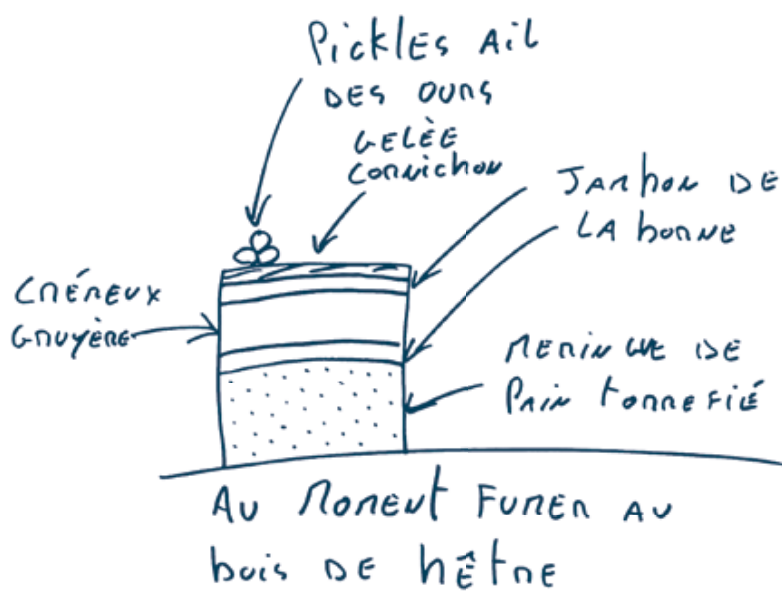 Pickles Ail
DES OURS
GELÈE
CORNICHON
JAMBON DE
LA BORNE
CRÉMEUX
GRUYÈRE
MERINGUE DE
PAIN TORREFIÉ
AU MOMENT FUMER AU
bois DE HÊTRE